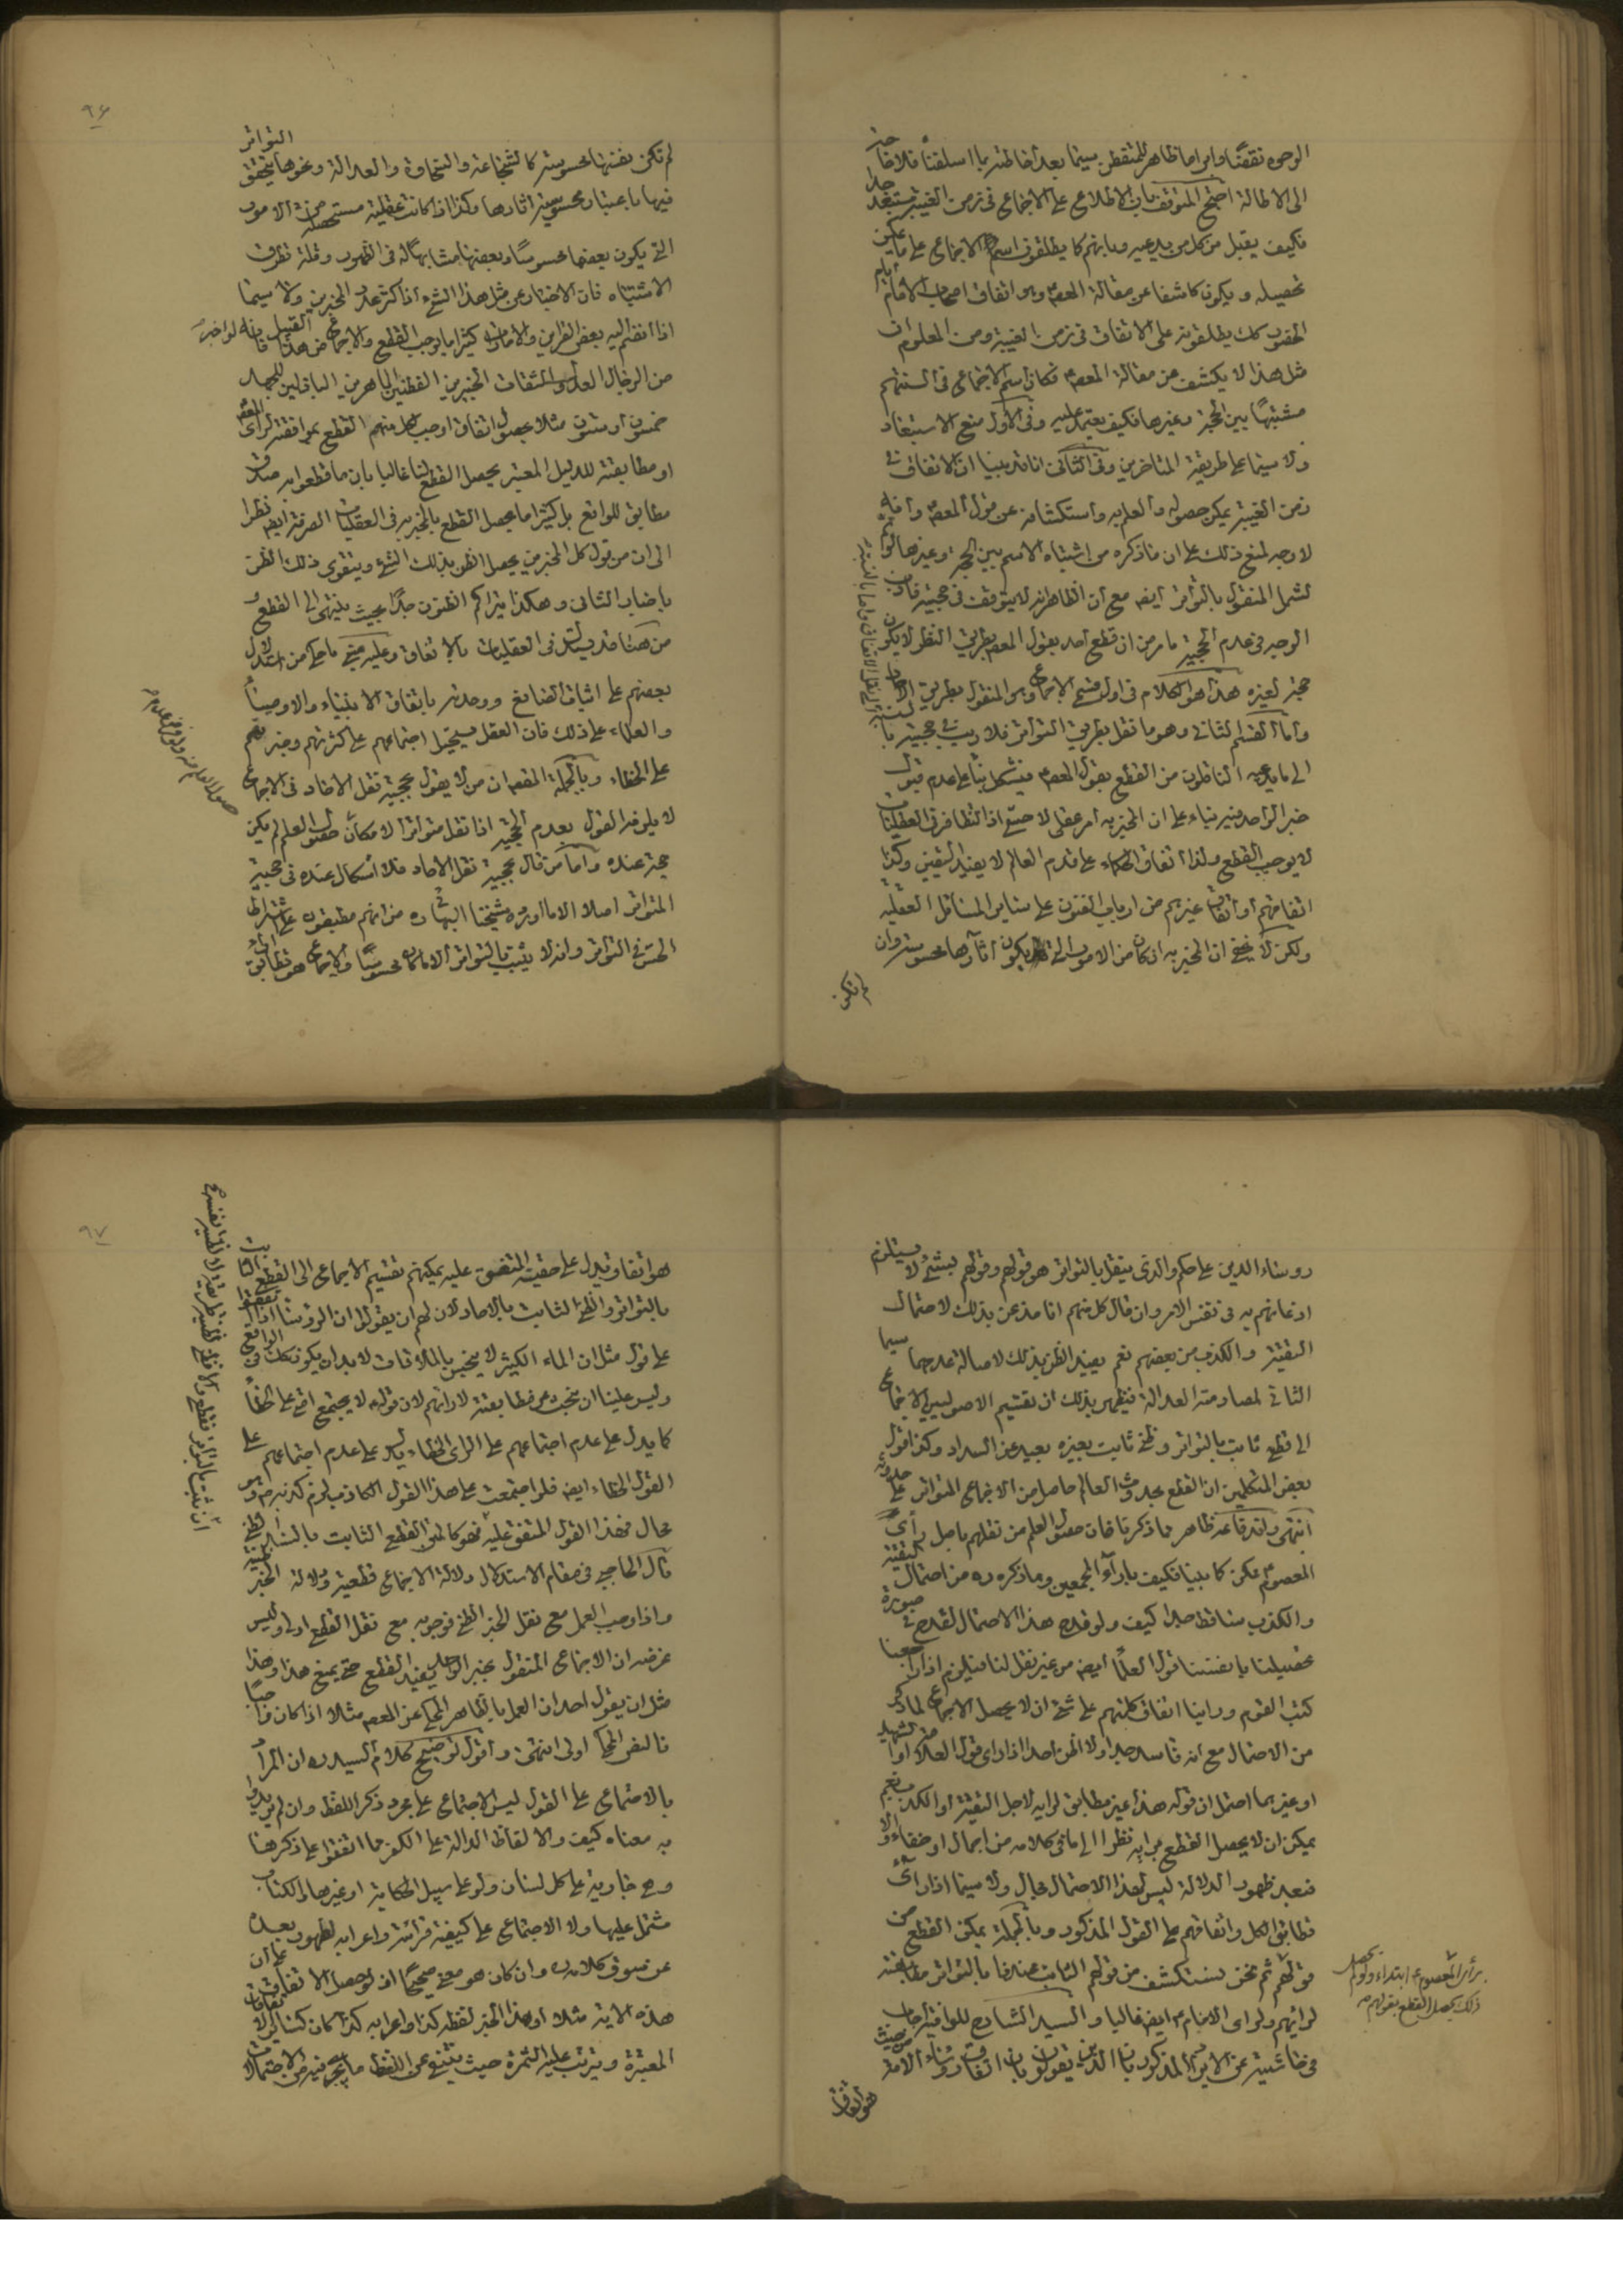 الوجوه نقضًا وابراما ظاهر للمتفطن سيما بعد احاطته بما اسلفنا فلا حاجة
الى الاطالة احتج المتوقف بان الاطلاع على الاجماع في زمن الغيبة مستبعد جدا
فكيف يقبل من كل من يدعيه وبانهم كما يطلقون اسم الاجماع على ما يمكن
تحصيله ويكون كاشفا عن مقالة المعصوم وهو اتفاق اصحاب الامام ايام
الحضور كك يطلقونه على الاتفاق في زمن الغيبة ومن المعلوم ان
مثل هذا لا يكشف عن مقالة المعصوم فكان اسم الاجماع في السنتهم
مشتبهًا بين الحجة وغيرها فكيف يعتمد عليه وفي الاول منع الاستبعاد
ولا سيما على طريقة المتاخرين وفي الثاني انا قد بينا ان الاتفاق في
زمن الغيبة يمكن حصوله والعلم به واستكشافه عن قول المعصوم وانه
لا وجه لمنع ذلك على ان ما ذكره من اشتباه الاسم بين الحجة وغيرها لو تم
لشمل المنقول بالتواتر ايضه مع ان الظاهر انه لا يتوقف في حجيته فان
الوجه في عدم الحجية ما مر من ان قطع احد بقول المعصوم بطريق النظر لا يكون
حجة لغيره هذا هو الكلام في اول قسم الاجماع وهو المنقول بطريق الاحاد
واما القسم الثاني وهو ما نقل بطريق التواتر فلا ريب في حجيته بالنسبة
الى ما يدعيه الناقلون من القطع بقول المعصوم فيشكل بناء على عدم قبول
خبر الواحد فيه بناء على ان المخبر به امر عقلي لا حسي اذ التظافر في العقليات
لا يوجب القطع ولذا اتفاق الحكماء على قدم العالم لا يفيد اليقين وكذا
اتفاقهم او اتفاق غيرهم من ارباب الفنون على ساير المسائل العقلية
ولكن لا يخفى ان المخبر به ان كان من الامور التي يكون اثارها محسوسة وان
لم تكن
٩۶
لم تكن نفسها محسوسة كالشجاعة والسخاوة والعدالة ونحوها يتحقق التواتر
فيها باعتبار محسوسية اثارها وكذا اذا كانت عقلية مستحصلة من الامور
التي يكون بعضها محسوسًا وبعضها مشابها له في الظهور وقلة تطرق
الاشتباه فان الاخبار عن مثل هذا الشيء اذا كثر عدد المخبرين ولا سيما
اذا انضم اليه بعض القراين والامارات كثيرا ما يوجب القطع والاجماع من هذا القبيل فانه لو اخبرنا
من الرجال العدول والثقات الخبيرين الفطنين الماهرين الباذلين للجهد
خمسون او ستون مثلا بحصول اتفاق اوجب كل منهم القطع بموافقته لراى المعصوم
او مطابقته للدليل المعتبر يحصل القطع لنا غالبا بان ما قطعوا به صدق
مطابق للواقع بل كثيرا ما يحصل القطع بالمخبر به في العقليات الصرفة ايضه نظرا
الى ان من قول كل المخبرين يحصل الظن بذلك الشيء ويتقوى ذلك الظن
باخبار الثاني وهكذا يتراكم الظنون جدًا بحيث ينتهي الى القطع و
من هنا قد يستدل في العقليات بالاتفاق وعليه يبتني ما حكي من استدلال
بعضهم على اثبات الصانع ووحدته باتفاق الانبياء والاوصياء
والعلماء على ذلك فان العقل يستحيل اجتماعهم على كثرتهم وخبرتهم
على الخطاء وبالجملة المقصود ان من لا يقول بحجية نقل الاحاد في الاجماع
لا يلزمه القول بعدم الحجية اذا نقل متواترا لامكان حصول العلم لم يكن
حجة عنده واما من قال بحجية نقل الاحاد فلا اشكال عنده في حجية
المتواتر اصلا الا ما اورده شيخنا البهائي ره من انهم مطبقون على اشتراط
الحس في التواتر وانه لا يثبت بالتواتر الا ما كان محسوسًا والاجماع هو تطابق اراء
روساء الدين على حكم والذي ينقل بالتواتر هو قولهم وقولهم بشيء لا يستلزم
اذعانهم به في نفس الامر وان قال كل منهم انا مذعن بذلك لاحتمال
التقية والكذب من بعضهم نعم يفيد الظن بذلك لاصالة عدمها سيما
الثاني لمصادمته العدالة فيظهر بذلك ان تقسيم الاصوليين الاجماع
الى قطعي ثابت بالتواتر وظني ثابت بغيره بعيد عن السداد وكذا قول
بعض المتكلمين ان القطع بحدوث العالم حاصل من الاجماع المتواتر على حدوثه
انتهى واندفاعه ظاهر مما ذكرنا فان حصول العلم من نقلهم باصل رأى
المعصوم ممكن كما بينا فكيف باراء المجمعين وما ذكره ره من احتمال التقية
والكذب ساقط جدا كيف ولو قدح هذا الاحتمال لقدح في صورة
تحصيلنا بانفسنا قول العلماء ايضه من غير نقل لنا فيلزم اذا راجعنا
كتب القوم وراينا اتفاق كلمتهم على شيء ان لا يحصل الاجماع لما ذكر
من الاحتمال مع انه فاسد جدا ولا اظن احدا اذا راى قول العلامة او الشهيد
او غيرهما احتمل ان قوله هذا غير مطابق لرايه لاجل التقية او الكذب نعم
يمكن ان لا يحصل القطع برايه نظرا الى ما في كلامه من اجمال او خفاء والا
فبعد ظهور الدلالة ليس لهذا الاحتمال مجال ولا سيما اذا راى
تطابق الكل واتفاقهم على القول المذكور وبالجملة يمكن القطع من
قولهم ثم نحن نستكشف من قولهم الثابت عندنا بالتواتر مطابقته
لرائهم ولراى الامام ع ايضه غالبا والسيد الشارح للوافية اجاب
في حاشيته عن الايراد المذكور بان الذين يقولون بان اتفاق رؤساء الامة من حيث
هو اتفاق
برأى المعصوم ع ابتداء ولو لم يحصل
ذلك يحصل القطع بقولهم
٩٧
هو اتفاق يدل على حقية المتفق عليه يمكنهم تقسيم الاجماع الى القطعي الثابت
بالتواتر والظني الثابت بالاحاد لان لهم ان يقولوا ان الروساء اذا اتفقوا
على قول مثل ان الماء الكثير لا ينجس بالملاقات لا بد ان يكون كك في الواقع
وليس علينا ان نبحث عن مطابقته لارائهم لان قوله لا يجتمع امتي على الخطأ
كما يدل على عدم اجتماعهم على الراى الخطاء يدل على عدم اجتماعهم على
القول الخطاء ايضه فلو اجتمعت على هذا القول الكاذب لزم كذبه ص وهو
محال فهذا القول المتفق عليه فهو كالمتن القطعي الثابت بالسند الظني
قال الحاجبي في مقام الاستدلال دلالة الاجماع قطعية ودلالة الخبر ظنية
واذا وجب العمل مع نقل الخبر الظني فوجوبه مع نقل القطع اولى وليس
غرضه ان الاجماع المنقول بخبر الواحد يفيد القطع حتى يمنع هذا وهذا
مثل ان يقول احد ان العمل بالظاهر المحكي عن المعصوم مثلا اذا كان واجبًا
فالنص المحكي اولى انتهى واقول توضيح كلام السيد ره ان المراد
بالاجتماع على القول ليس الاجتماع على مجرد ذكر اللفظ وان لم يريدوا
به معناه كيف والالفاظ الدالة على الكفر مما اتفقوا على ذكرها
وهي جارية على كل لسان ولو على سبيل الحكاية او غيرها والكتاب
مشتمل عليها ولا الاجتماع على كيفية قرائته واعرابه لظهور بعده
عن سوق كلامه ره وان كان هو معنى صحيحًا اذ لو حصل الاتفاق على ان
هذه الاية مثلا او هذا الخبر لفظه كذا واعرابه كذا كان كساير الاتفاقات
المعتبرة ويترتب عليه الثمرة حيث يتنبه عن اللفظ ما يجر فيه من الاحتمالات